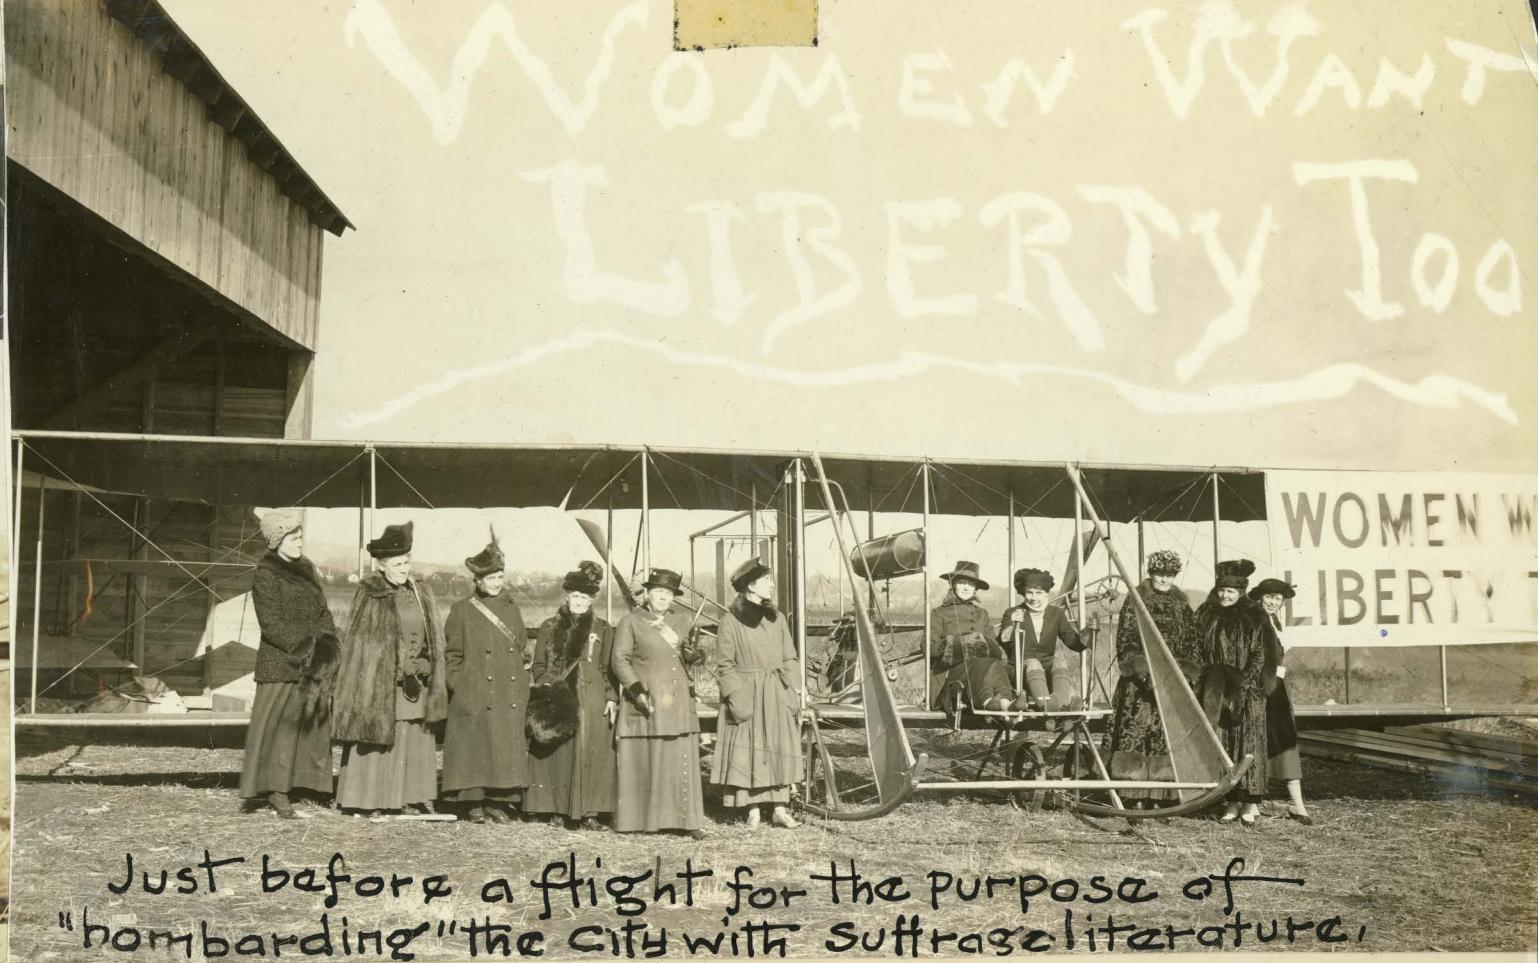 WOMEN WANT
LIBERTY TOO
WOMEN W
LIBERTY T
Just before a flight for the purpose of
"bombarding" the City with Suffrage literature.